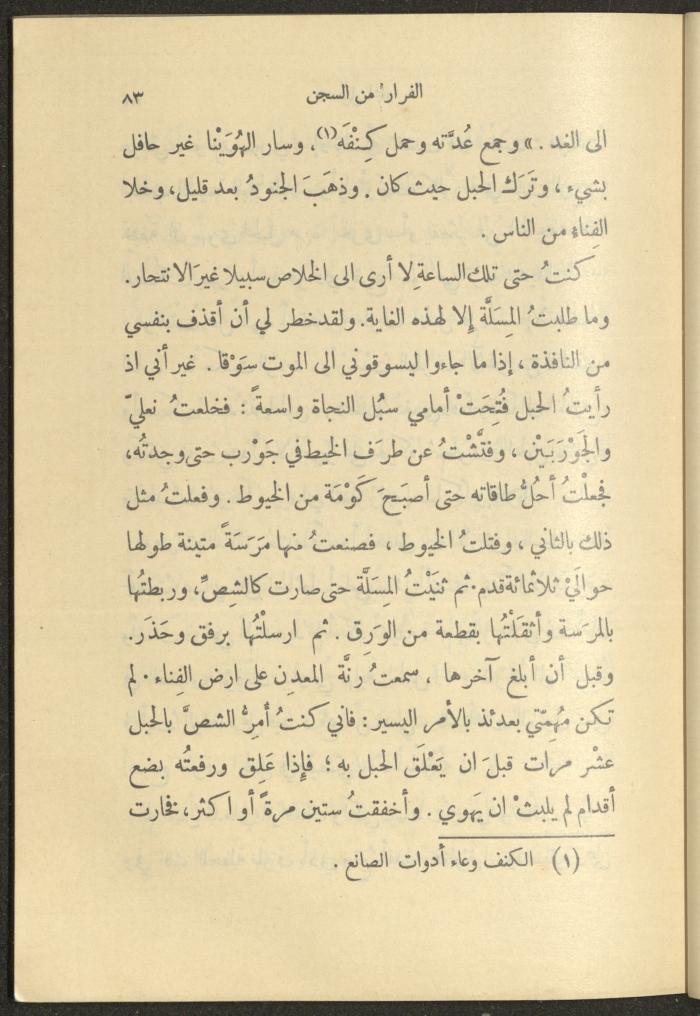 الفرار من السجن
٨٣
الى الغد . » وجمع عُدَّته وحمل كِنْفَه(١)، وسار الهُوَيْنا غير حافل
بشيء ، وتَرَك الحبل حيث كان . وذهَبَ الجنودُ بعد قليل، وخلا
الفِناء من الناس .
كنتُ حتى تلك الساعةِ لا أرى الى الخلاص سبيلا غيرَ الانتحار.
وما طلبتُ المِسَلَّة إِلا لهذه الغاية. ولقد خطر لي أن أقذف بنفسي
من النافذة ، إذا ما جاءوا ليسوقوني الى الموت سَوْقا . غير أني اذ
رأيتُ الحبل فُتِحَتْ أمامي سبُل النجاة واسعةً : فخلعتُ نعليّ
والجَوْرَبَيْن ، وفتَّشْتُ عن طرَف الخيط في جَوْرب حتى وجدتُه،
فجعلْتُ أحُلُّ طاقاته حتى أصبَحَ كَوْمَة من الخيوط . وفعلتُ مثل
ذلك بالثاني ، وفتلتُ الخيوط ، فصنعتُ منها مَرَسَةً متينة طولها
حوالَيْ ثلاثمائة قدم. ثم ثنَيْتُ المِسَلَّة حتى صارت كالشِصِّ، وربطتُها
بالمرَسة وأثقَلْتُها بقطعة من الوَرِق . ثم ارسلْتُها برفق وحَذَر.
وقبل أن أبلغ آخرها ، سمعتُ رنَّة المعدِن على ارض الفِناء . لم
تكن مُهِمّتي بعدئذ بالأمر اليسير : فاني كنتُ أُمِرُّ الشصَّ بالحبل
عشْر مرات قبلَ ان يَعْلَق الحبل به ؛ فإِذا عَلِق ورفعتُه بضع
أقدام لم يلبثْ ان يَهوي . وأخفقتُ ستين مرةً أو اكثر، فخارت
(١) الكنف وعاء أدوات الصانع .